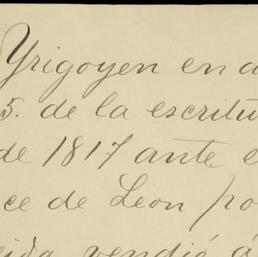 Yrigoyen en
5. de la escritu
de 1817 ante
ce de Leon po
vendió á